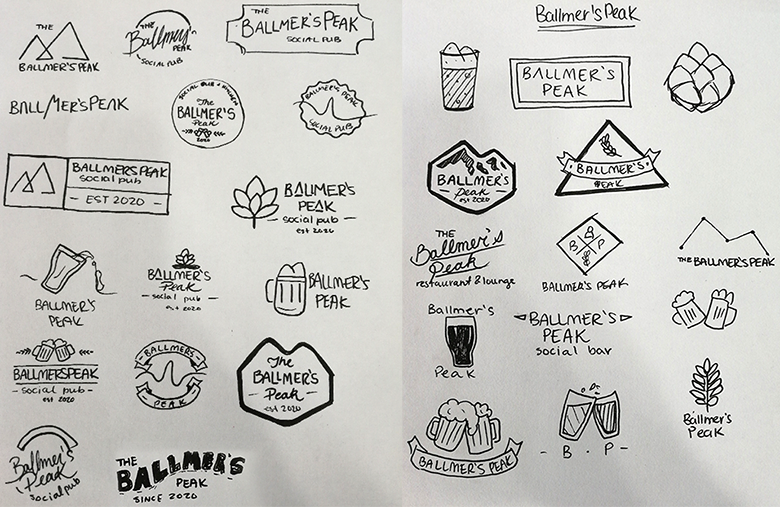 THE
BALLMER'S PEAK
THE
Ballmer's
PEAK
SOCIAL PUB
THE
BALLMER'S PEAK
SOCIAL PUB
BALLMER'S PEAK
SOCIAL PUB + KITCHEN
The
BALLMER'S
Peak
BALLMER'S PEAK
SOCIAL PUB
BALLMERSPEAK
social pub
- EST 2020 -
BALLMER'S
PEAK
- social pub -
est 2020
BALLMER'S
PEAK
BALLMER'S
Peak
- social pub -
est 2020
BALLMER'S
PEAK
BALLMERSPEAK
- social pub -
est 2020
BALLMERS
PEAK
The
BALLMER'S
- Peak -
est 2020
Ballmer's
Peak
social pub
THE
BALLMER'S
PEAK
SINCE 2020
Ballmer's Peak
BALLMER'S
PEAK
BALLMER'S
- Peak -
est 2020
BALLMER'S
PEAK
THE
Ballmer's
Peak
restaurant & lounge
B P
BALLMER'S PEAK
THE BALLMER'S PEAK
Ballmer's
Peak
BALLMER'S
PEAK
social bar
Ballmer's
Peak
BALLMER'S PEAK
- B · P -